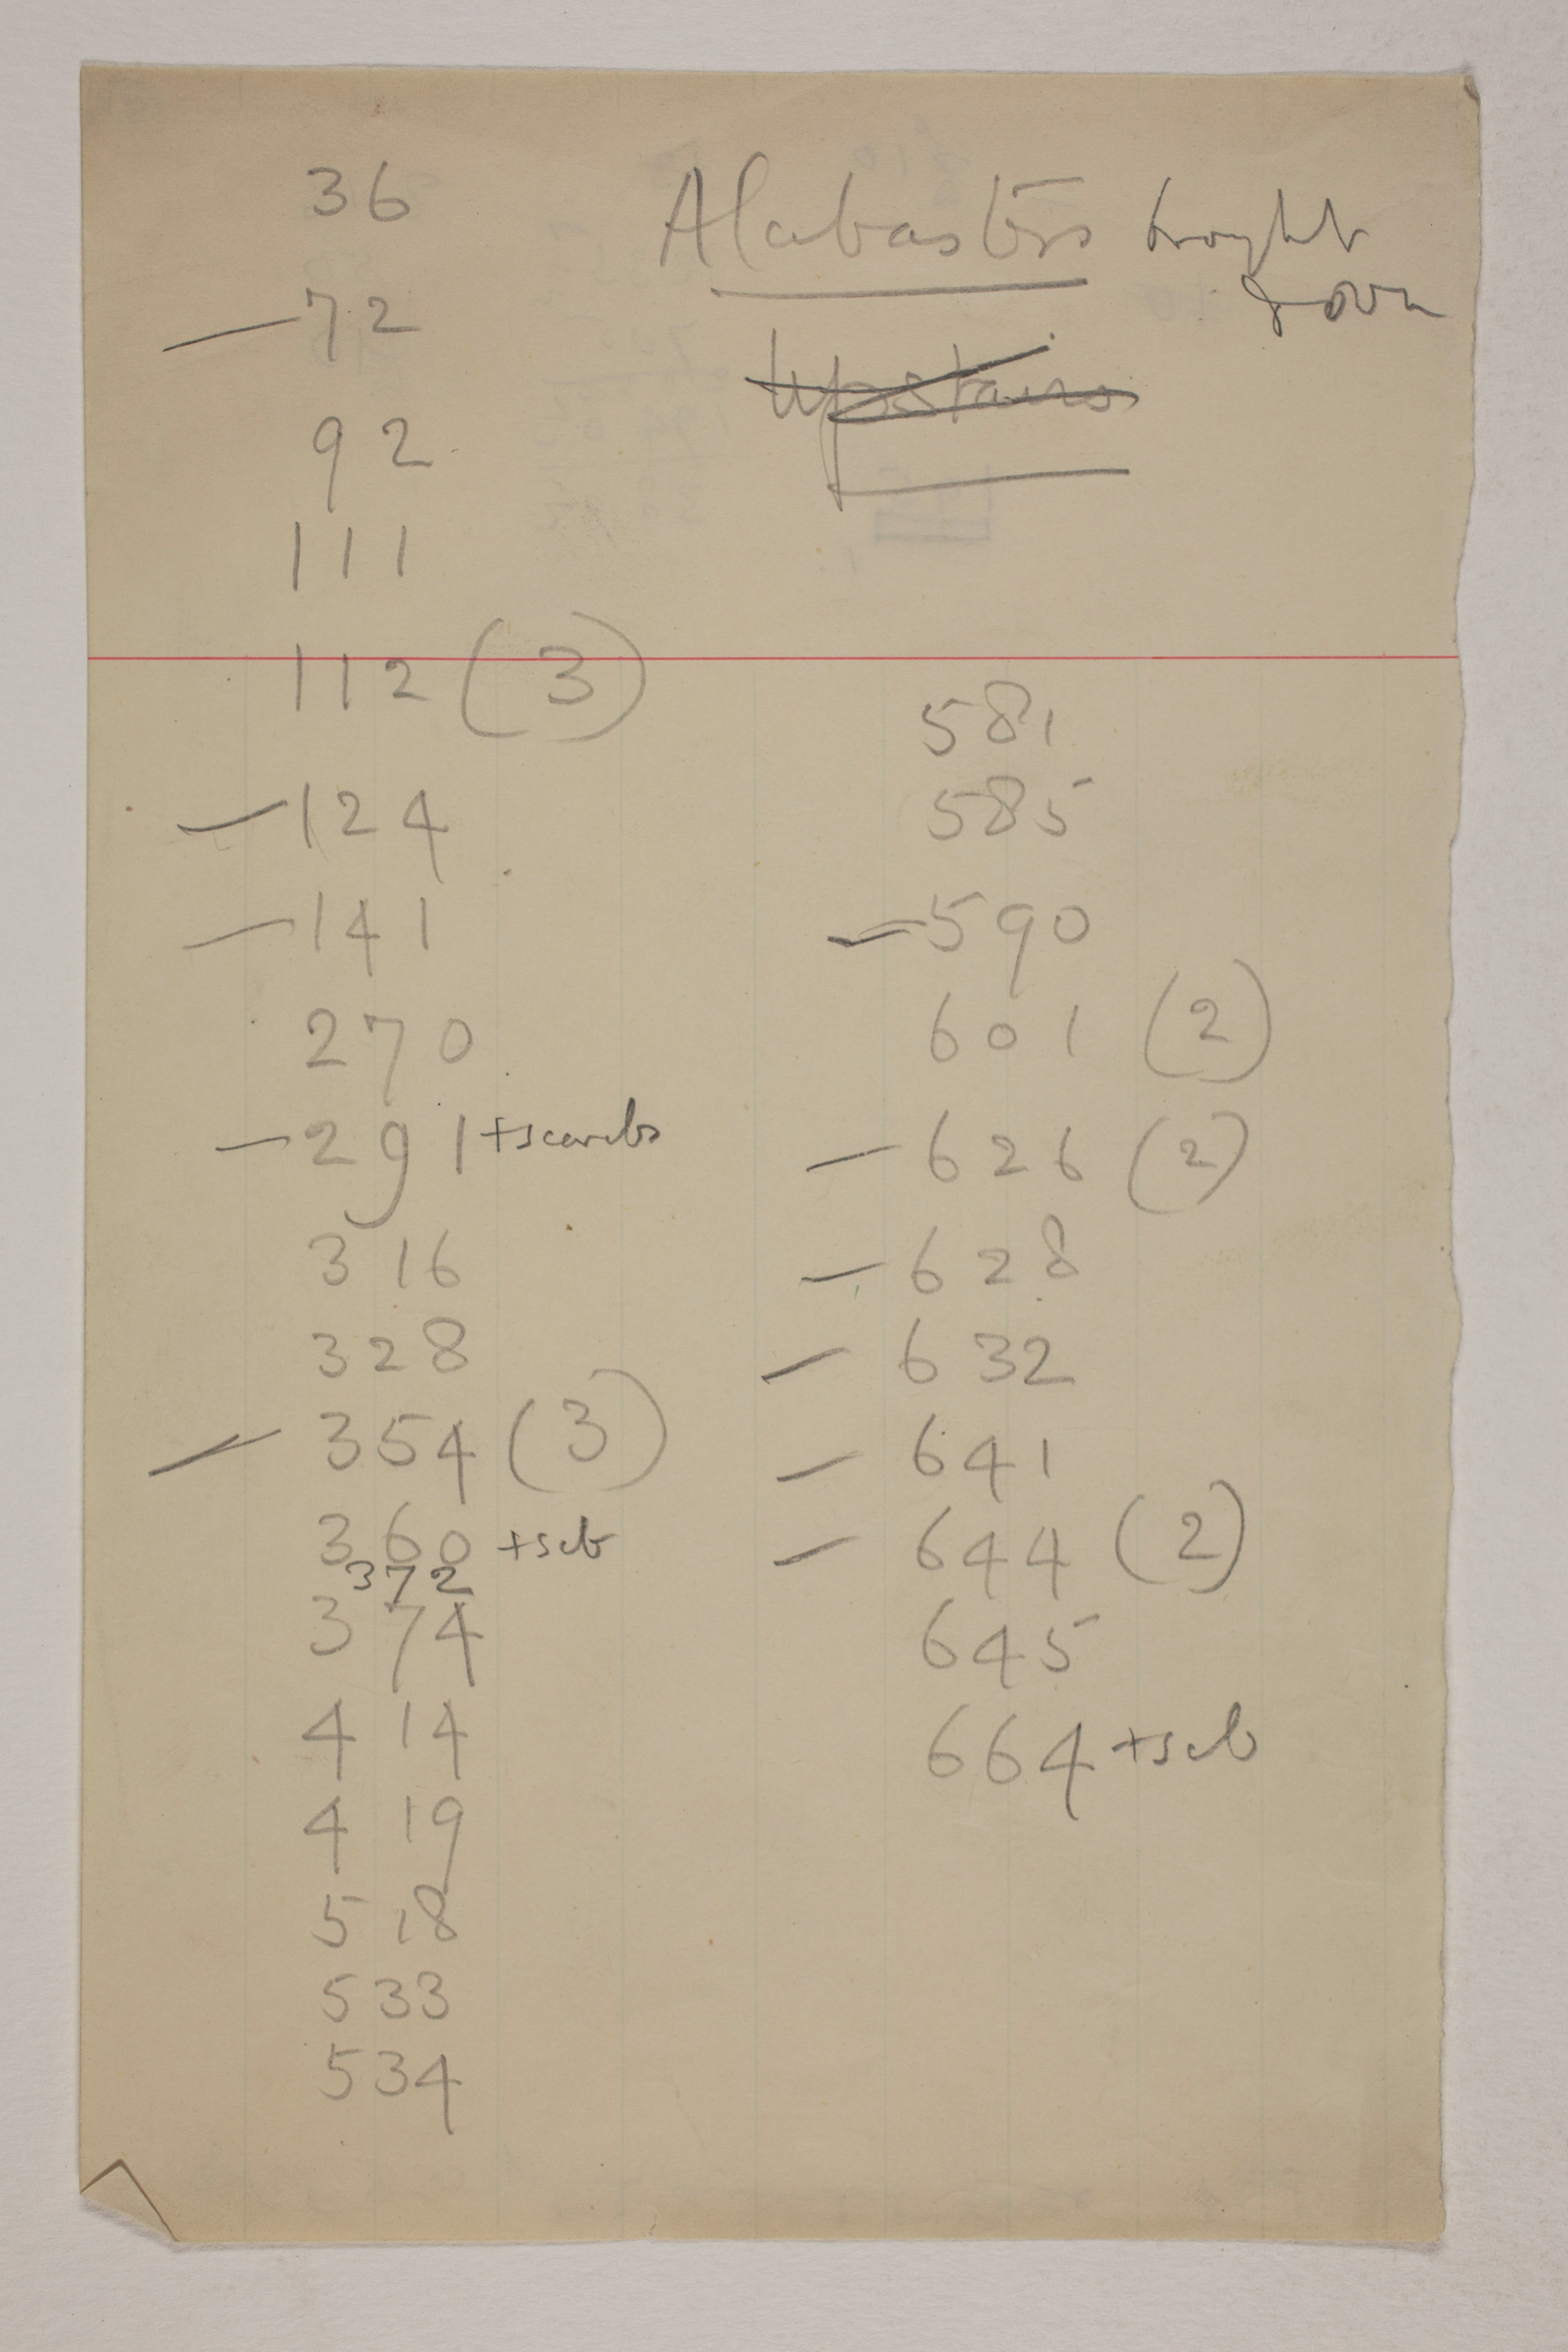 Alabasters brought
down
Upstairs
36
—72
92
111
112 (3)
—124
—141
270
—291 +scarabs
316
328
—354 (3)
360 +scb
372
374
414
419
518
533
534
581
585
—590
601 (2)
—626 (2)
—628
—632
—641
—644 (2)
645
664 +scb